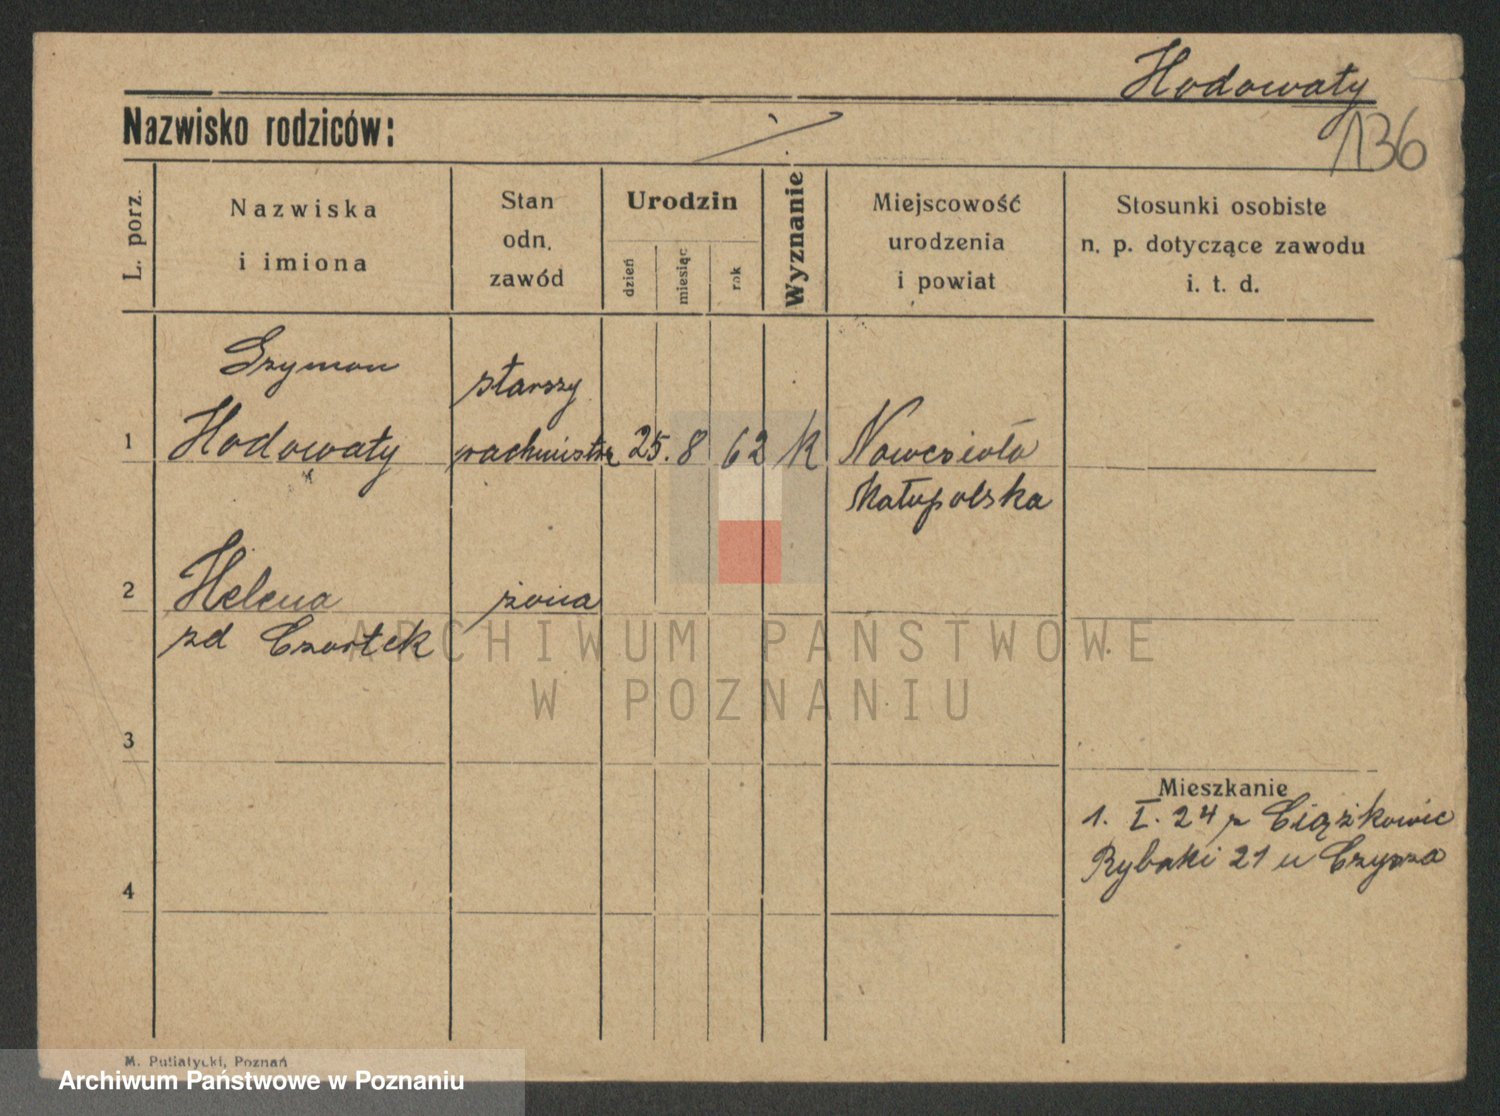 Hodowaty
136
Nazwisko rodziców:
L. porz.
Nazwiska
i imiona
Stan
odn.
zawód
Urodzin
dzień
miesiąc
rok
Wyznanie
Miejscowość
urodzenia
i powiat
Stosunki osobiste
n. p. dotyczące zawodu
i. t. d.
Szymon
starszy
1 Hodowaty wachmistrz 25. 8 62 K Nowesioło
Małopolska
2 Helena żona
zd Czortek
ARCHIWUM PAŃSTWOWE
W POZNANIU
3
Mieszkanie
1. I. 24 z Ciążkowic
Rybaki 21 u Czysza
4
M. Putiatycki, Poznań
Archiwum Państwowe w Poznaniu